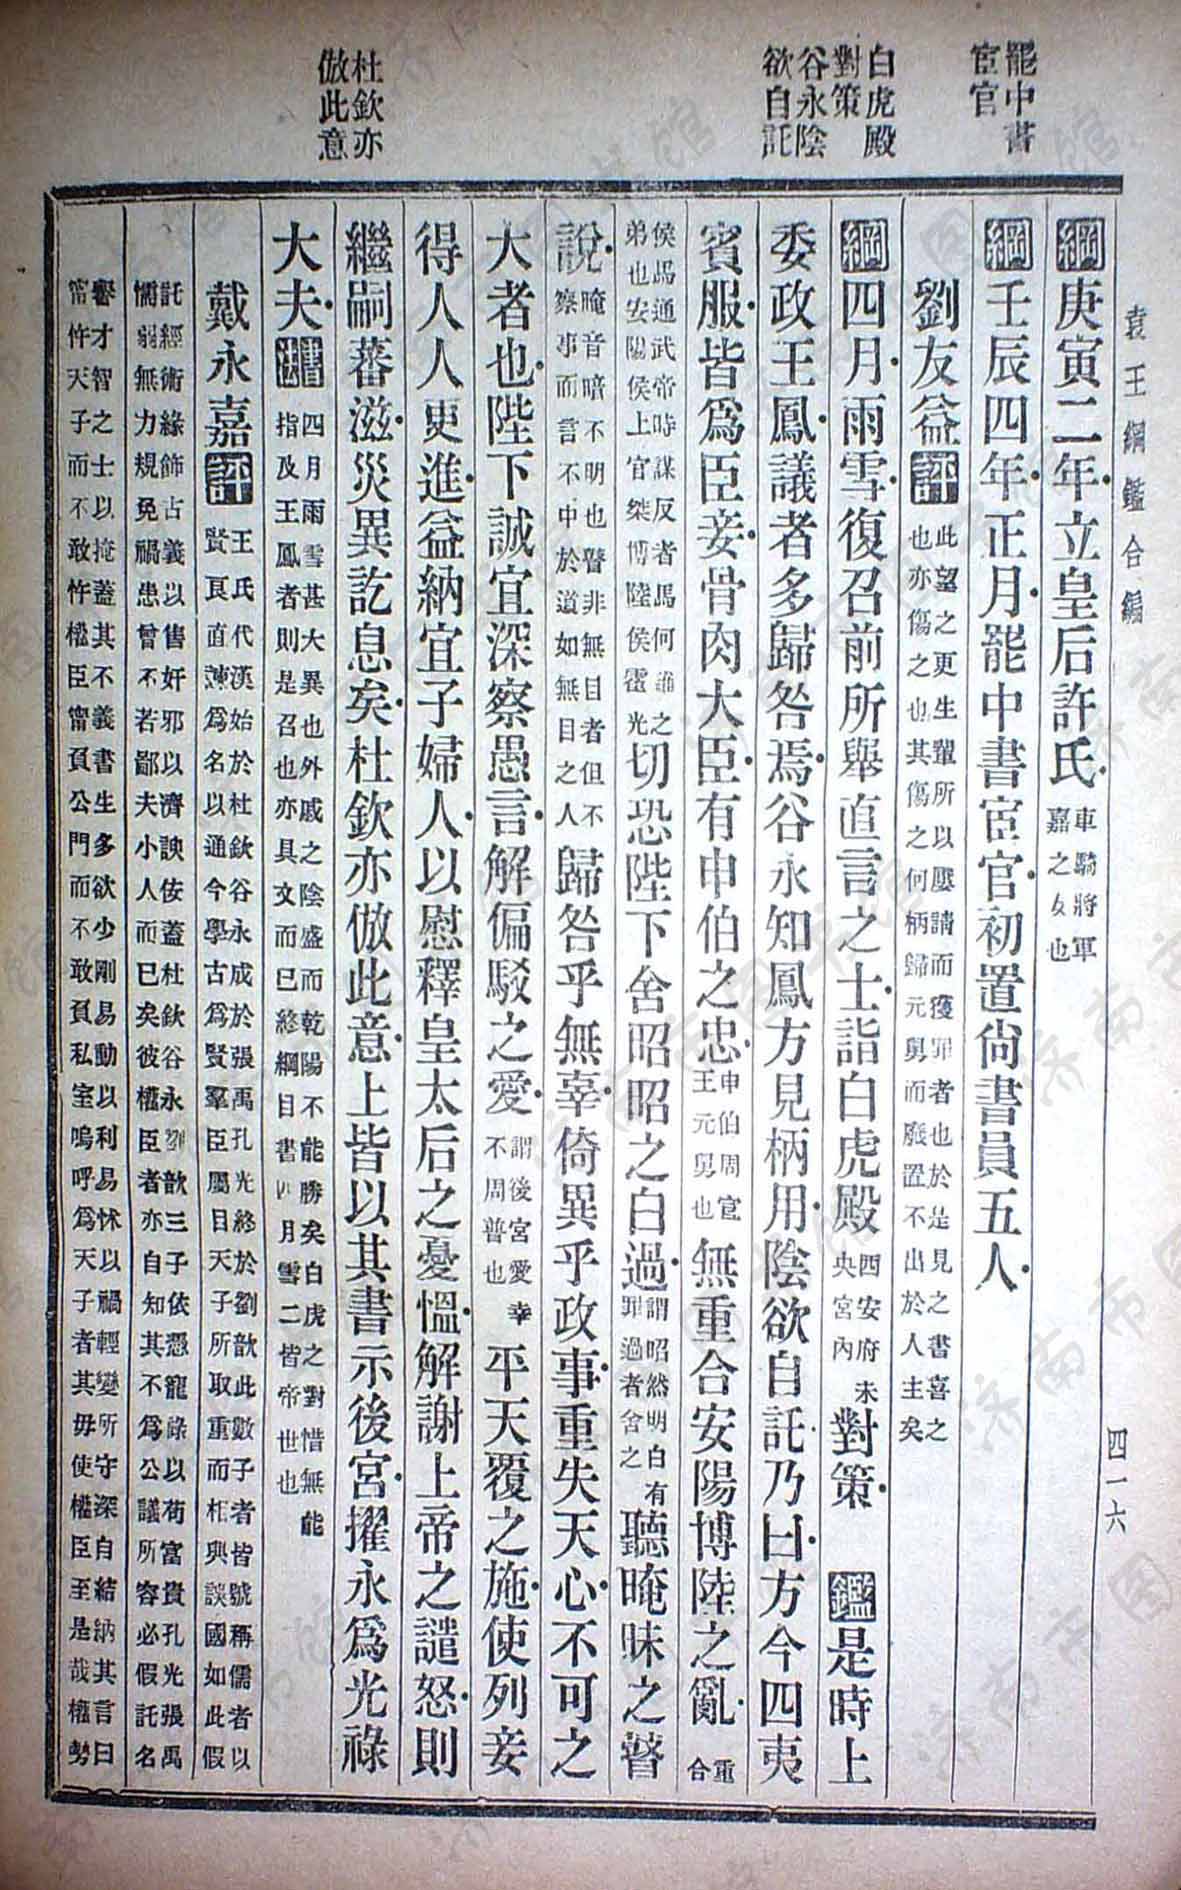 罷中書
宦官
白虎殿
對策
谷永陰
欲自託
杜欽亦
倣此意
袁王綱鑑合編
四一六
綱庚寅二年立皇后許氏車騎將軍嘉之女也
綱壬辰四年正月罷中書宦官初置尙書員五人
劉友益評此望之更生輩所以壓請而獲罪者也於是見之書喜之也亦傷之也其傷之何柄歸元舅而廢置不出於人主矣
綱四月雨雪復召前所舉直言之士詣白虎殿西安府未央宮內對策鑑是時上
委政王鳳議者多歸咎焉谷永知鳳方見柄用陰欲自託乃曰方今四夷
賓服皆爲臣妾骨肉大臣有申伯之忠申伯周宣王元舅也無重合安陽博陸之亂重合
侯馬通武帝時謀反者馬何羅之弟也安陽侯上官桀博陸侯霍光切恐陛下舍昭昭之白過謂昭然明白有罪過者舍之聽晻昧之瞽
說晻音暗不明也瞽非無目者但不察事而言不中於道如無目之人歸咎乎無辜倚異乎政事重失天心不可之
大者也陛下誠宜深察愚言解偏駁之愛謂後宮愛幸不周普也平天覆之施使列妾
得人人更進益納宜子婦人以慰釋皇太后之憂慍解謝上帝之譴怒則
繼嗣蕃滋災異訖息矣杜欽亦倣此意上皆以其書示後宮擢永爲光祿
大夫書法四月雨雪甚大異也外戚之陰盛而乾陽不能勝矣白虎之對惜無能指及王鳳者則是召也亦具文而已終綱目書四月雪二皆帝世也
戴永嘉評王氏代漢始於杜欽谷永成於張禹孔光終於劉歆此數子者皆號稱儒者以賢良直諫爲名以通今學古爲賢羣臣屬目天子所取重而相與誤國如此假
託經術緣飾古義以售奸邪以濟諛佞蓋杜欽谷永劉歆三子依憑寵祿以苟富貴孔光張禹懦弱無力規免禍患曾不若鄙夫小人而已矣彼權臣者亦自知其不爲公議所容必假託名
譽才智之士以掩蓋其不義書生多欲少剛易動以利易怵以禍輕變所守深自結納其言曰甯忤天子而不敢忤權臣甯負公門而不敢負私室嗚呼爲天子者其毋使權臣至是哉權勢